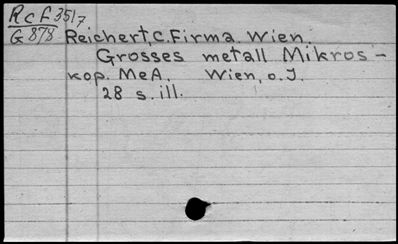 Rcf 3517
G 878
Reichert, C. Firma Wien
Grosses metall Mikros-
kop. MeA. Wien, o. J.
28 s. ill.